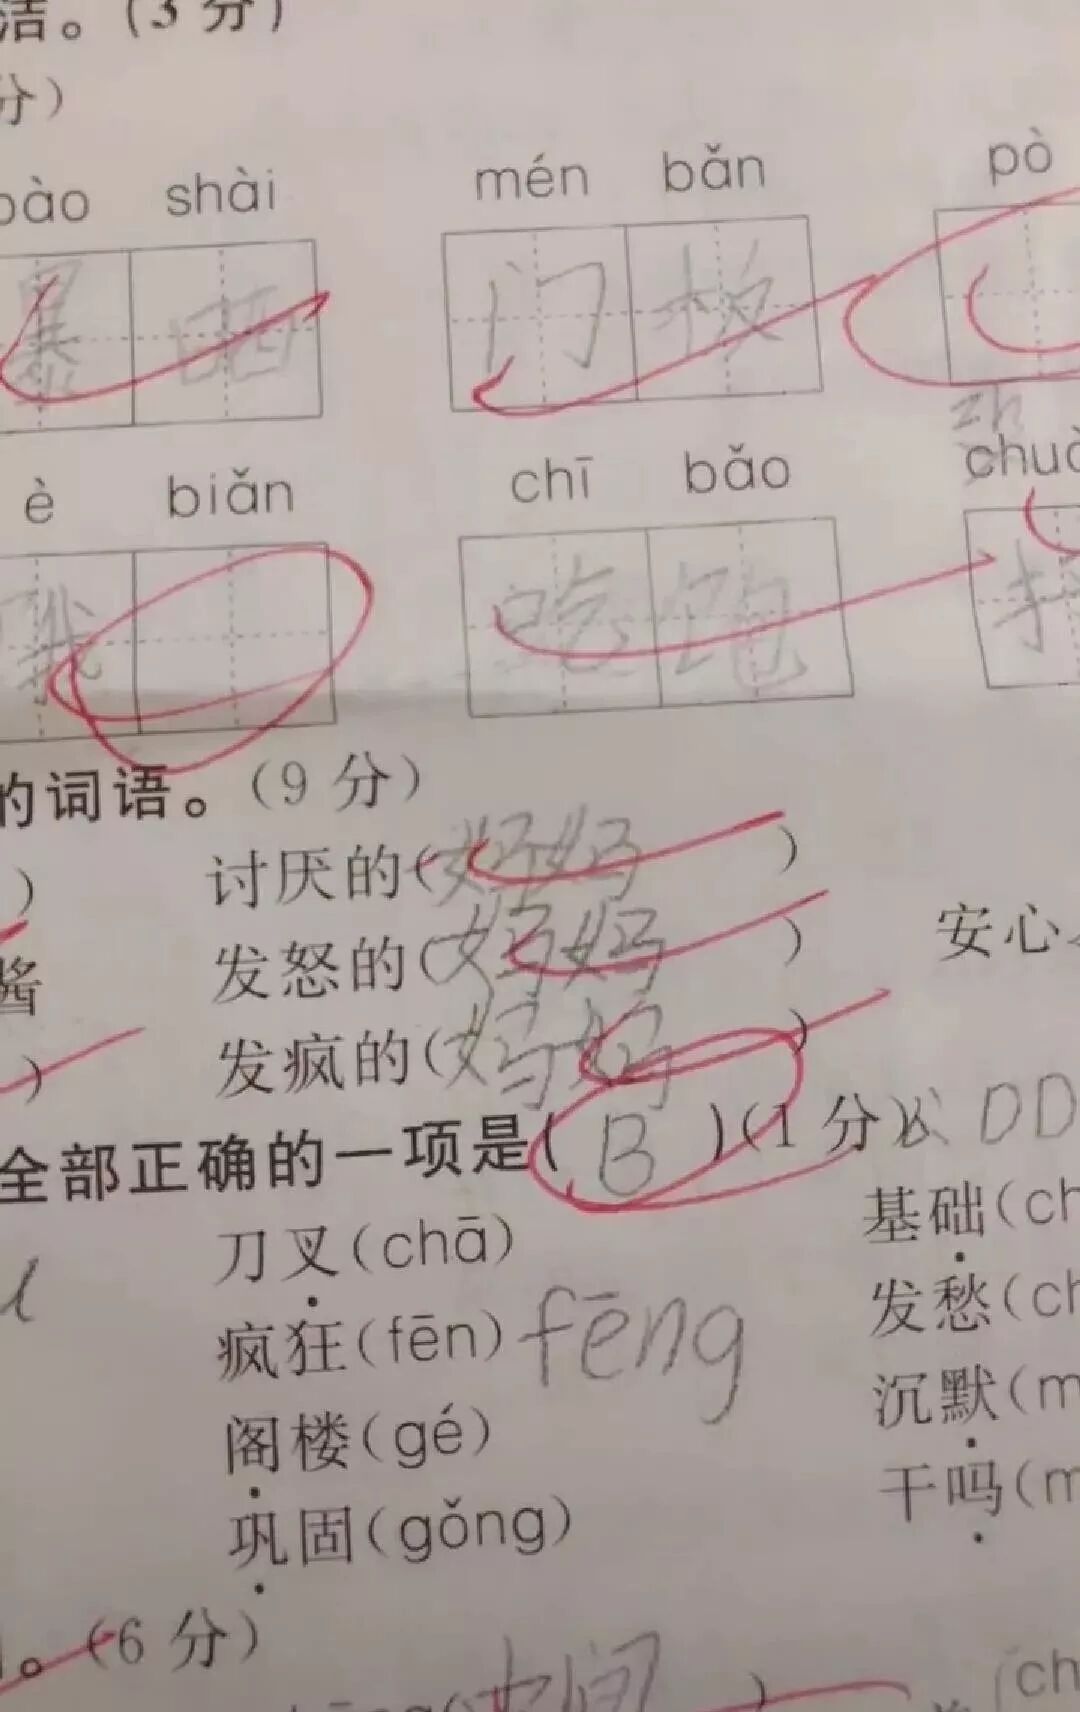 洁。(3分)
分)
bào shài mén bǎn pò
暴 晒 门 板
zh
è biǎn chī bǎo chuò
哦 吃 饱 扌
的词语。(9分)
) 讨厌的(妈妈)
酱 发怒的(妈妈) 安心
) 发疯的(妈妈)
全部正确的一项是(B)(1分) DD
刀叉(chā) 基础(ch
疯狂(fēn) fēng 发愁(ch
阁楼(gé) 沉默(m
巩固(gǒng) 干吗(m
。(6分)
中间 ) (ch